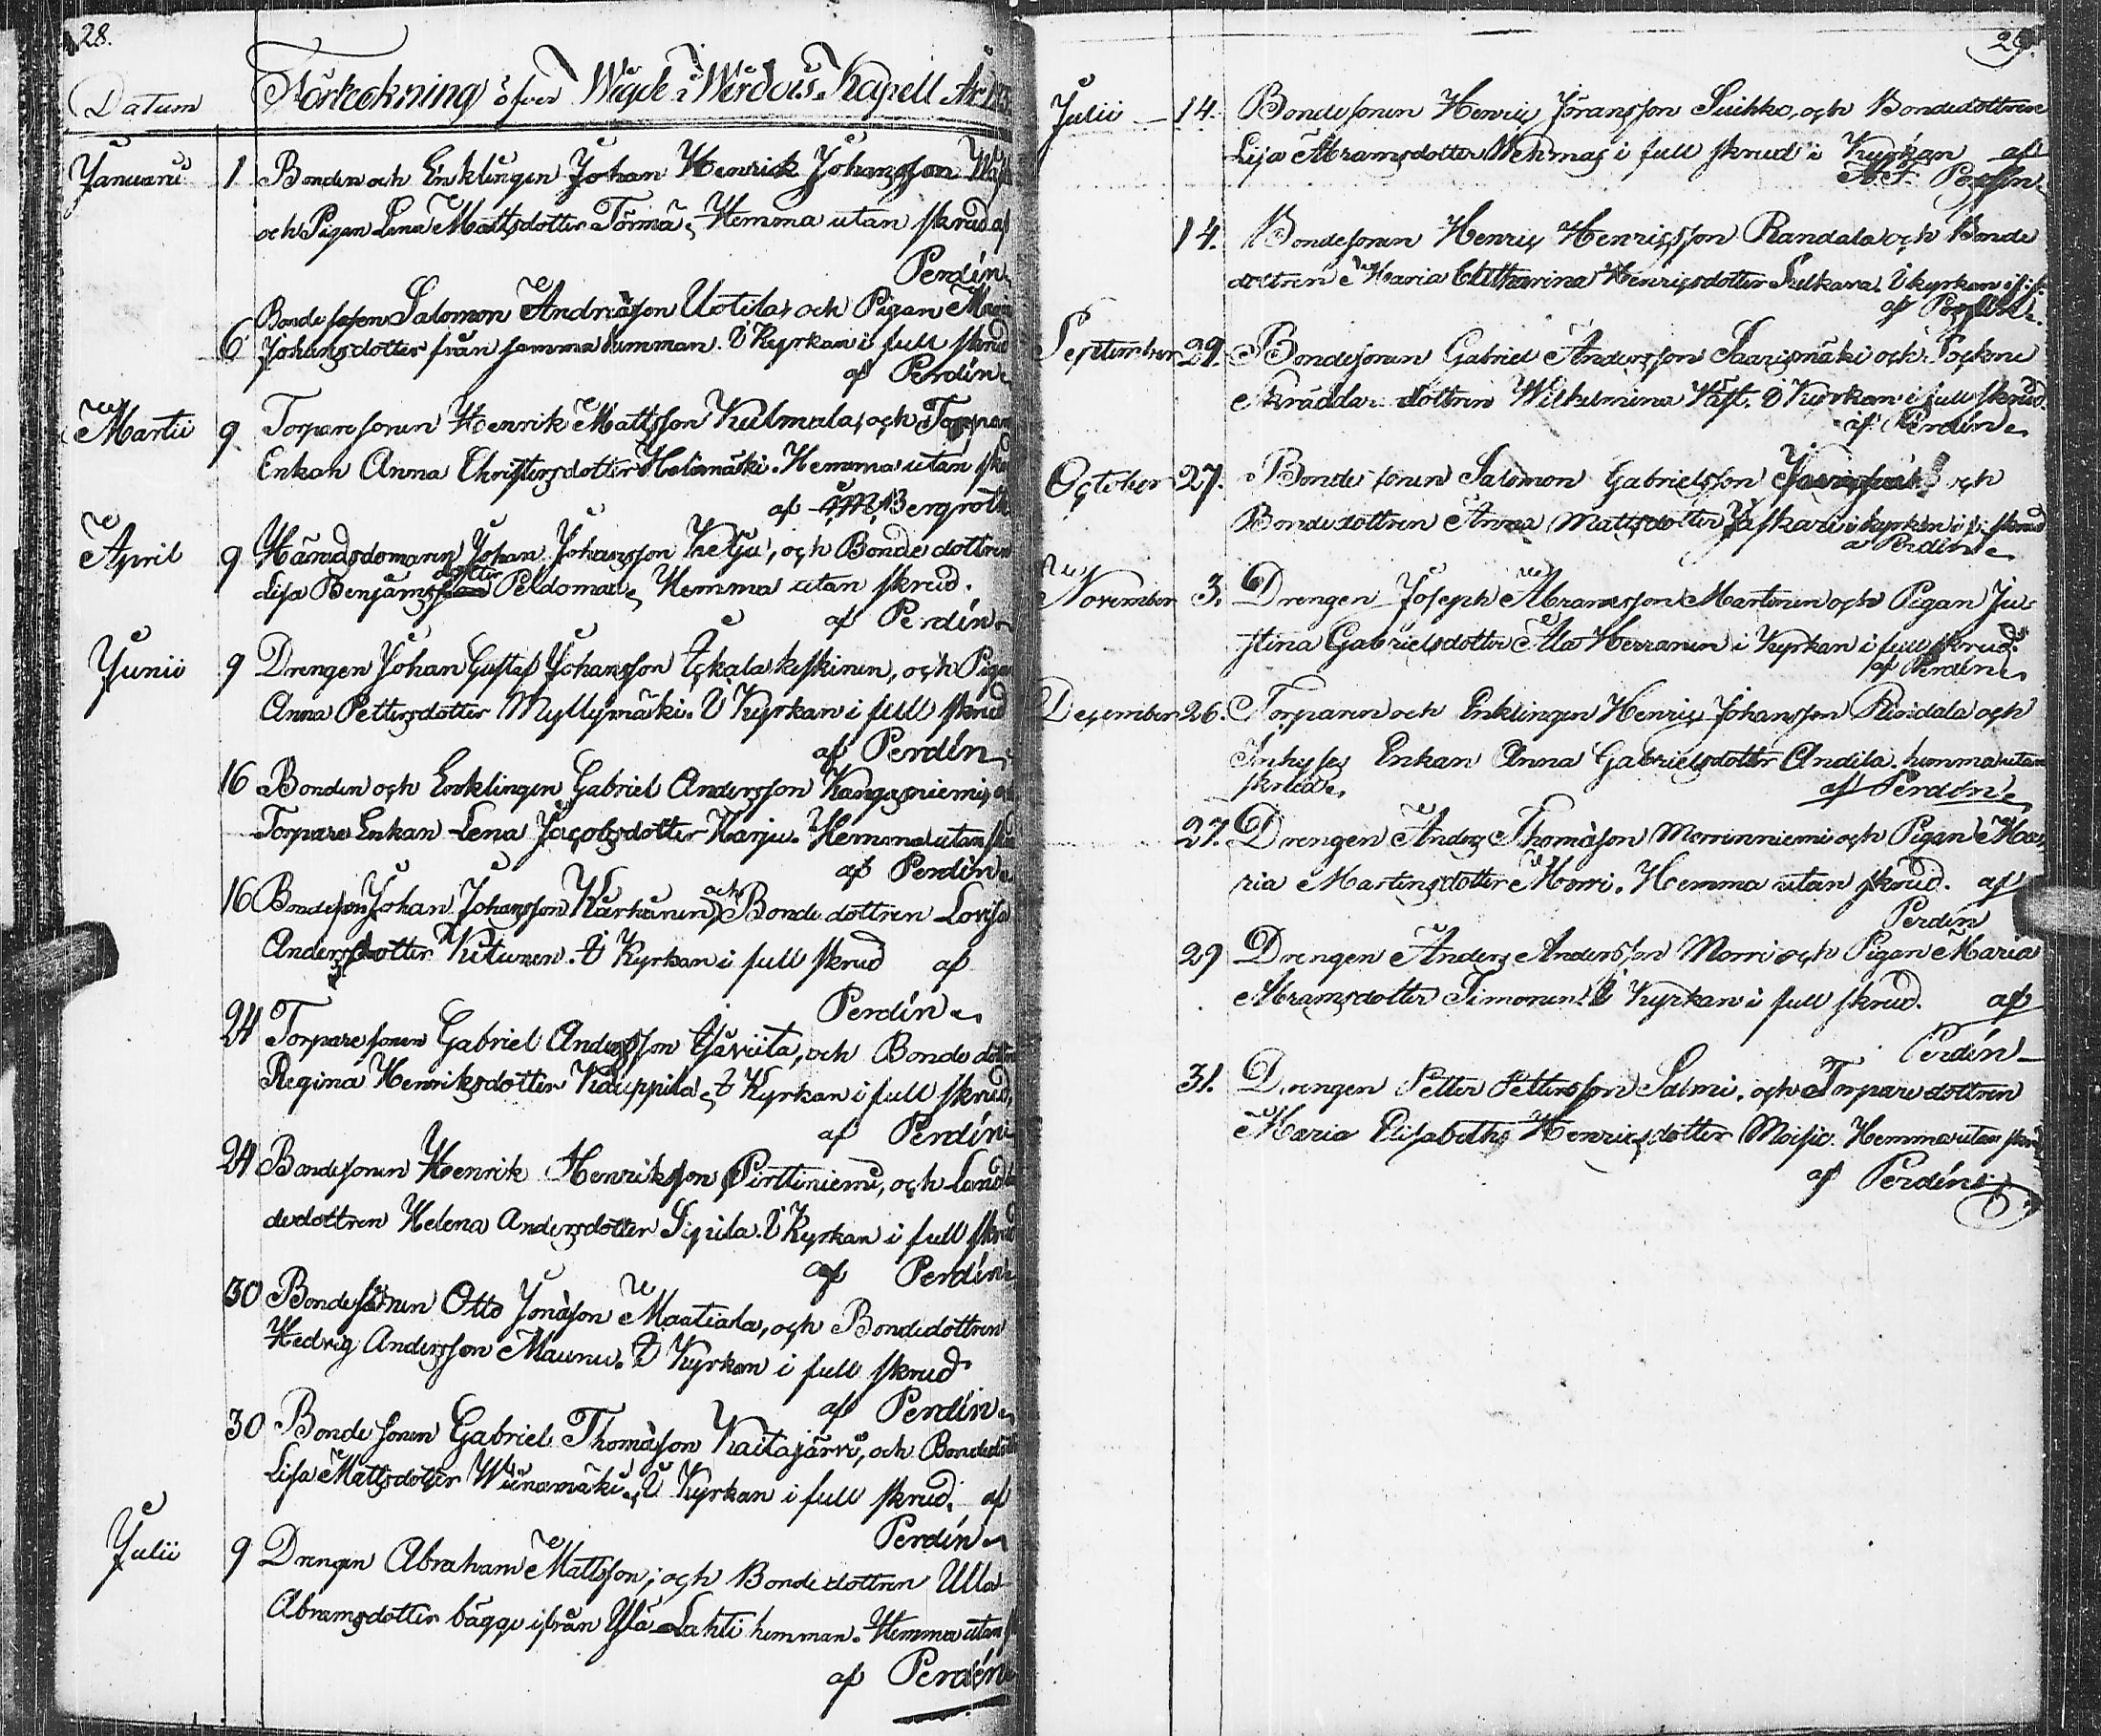 28.
Datum
Förteckning öfver Wigde i Wirdois Kapell År
Januarii 1 Bonden och Enklingen Johan Henrick Johansson
och Pigan Lena Mattsdotter Törmä, Hemma utan skrud af
Perdén
Bondesonen Salomon Andriasson Uotila och Pigan Maria
6 Johansdotter från samma hemman. I Kyrkan i full skrud
af Perdén
Martii 9 Torparesonen Henrik Mattsson Kulmala, och Torpare
Enkan Anna Christersdotter Halomäki. Hemma utan
af Bergroth
April 9 Häradsdomaren Johan Johansson Ketju, och Bondedottren
dotter
Lisa Benjams Peldomaa, Hemma utan skrud.
af Perdén
Junii 9 Drengen Johan Gustaf Johansson keskinen, och Pigan
Anna Pettersdotter Myllymäki. I Kyrkan i full skrud
af Perdén
16 Bonden och Enklingen Gabriel Andersson Kangasniemi,
Torpare Enkan Lena Jacobsdotter Harju. Hemma utan
af Perdén
16 Bondeson Johan Johansson Kärkänen och Bondedottren Lovisa
Andersdotter Kitunen. I Kyrkan i full skrud af
Perdén
24 Torparesonen Gabriel Andersson, och Bonde
Regina Henriksdotter Kauppila, I Kyrkan i full skrud,
af Perdén
24 Bondesonen Henrik Henriksson Pirttiniemi, och
dedottren Helena Andersdotter Sipila. I Kyrkan i full skrud
af Perdén
30 Bondesonen Otto Jonasson Maatiala, och Bondedottren
Hedvig Andersson Maunu. I Kyrkan i full skrud
af Perdén
30 Bondesonen Gabriel Thomasson Kaitajärvi, och
Lisa Mattsdotter Wiinamäki, I Kyrkan i full skrud. af
Perdén
Julii 9 Drengen Abraham Mattsson, och Bondedottren Ulla
Abramsdotter bägge ifrån Ylä Lahti hemman. Hemma utan
af Perdén
29.
Julii 14. Bondesonen Henric Jöransson Suihko, och Bondedottren
Lisa Abramsdotter Wehmas i full skrud i Kyrkan af
14. Bondesonen Henric Henricsson Randala och Bonde
dottren Maria Catharina Henricsdotter I kyrkan
af
September 29. Bondesonen Gabriel Andersson Saarismäki och Sockne
Skräddar dottren Wilhelmina Väst. I Kyrkan i full skrud.
af Perdén
October 27. Bondesonen Salomon Gabrielsson och
Bondedottren Anna Mattsdotter Jäskari i kyrkan i f. skrud
a Perdén
November 3. Drengen Joseph Abramsson Martinen och Pigan Ju-
stina Gabrielsdotter Ala Herranen i Kyrkan i full skrud.
af Perdén
December 26. Torparen och Enklingen Henric Johansson Rindala och
Inhyses Enkan Anna Gabrielsdotter Andila. hemma utan
skrud. af Perdén
27. Drengen Anders Thomasson Morrinniemi och Pigan Ma-
ria Martinsdotter Morri. Hemma utan skrud. af
Perdén
29 Drengen Anders Andersson Morri och Pigan Maria
Abramsdotter Simonen. I Kyrkan i full skrud. af
Perdén
31. Drengen Petter Pettersson Salmi, och Torparedottren
Maria Elisabeths Henricsdotter Moisio. Hemma utan
af Perdén